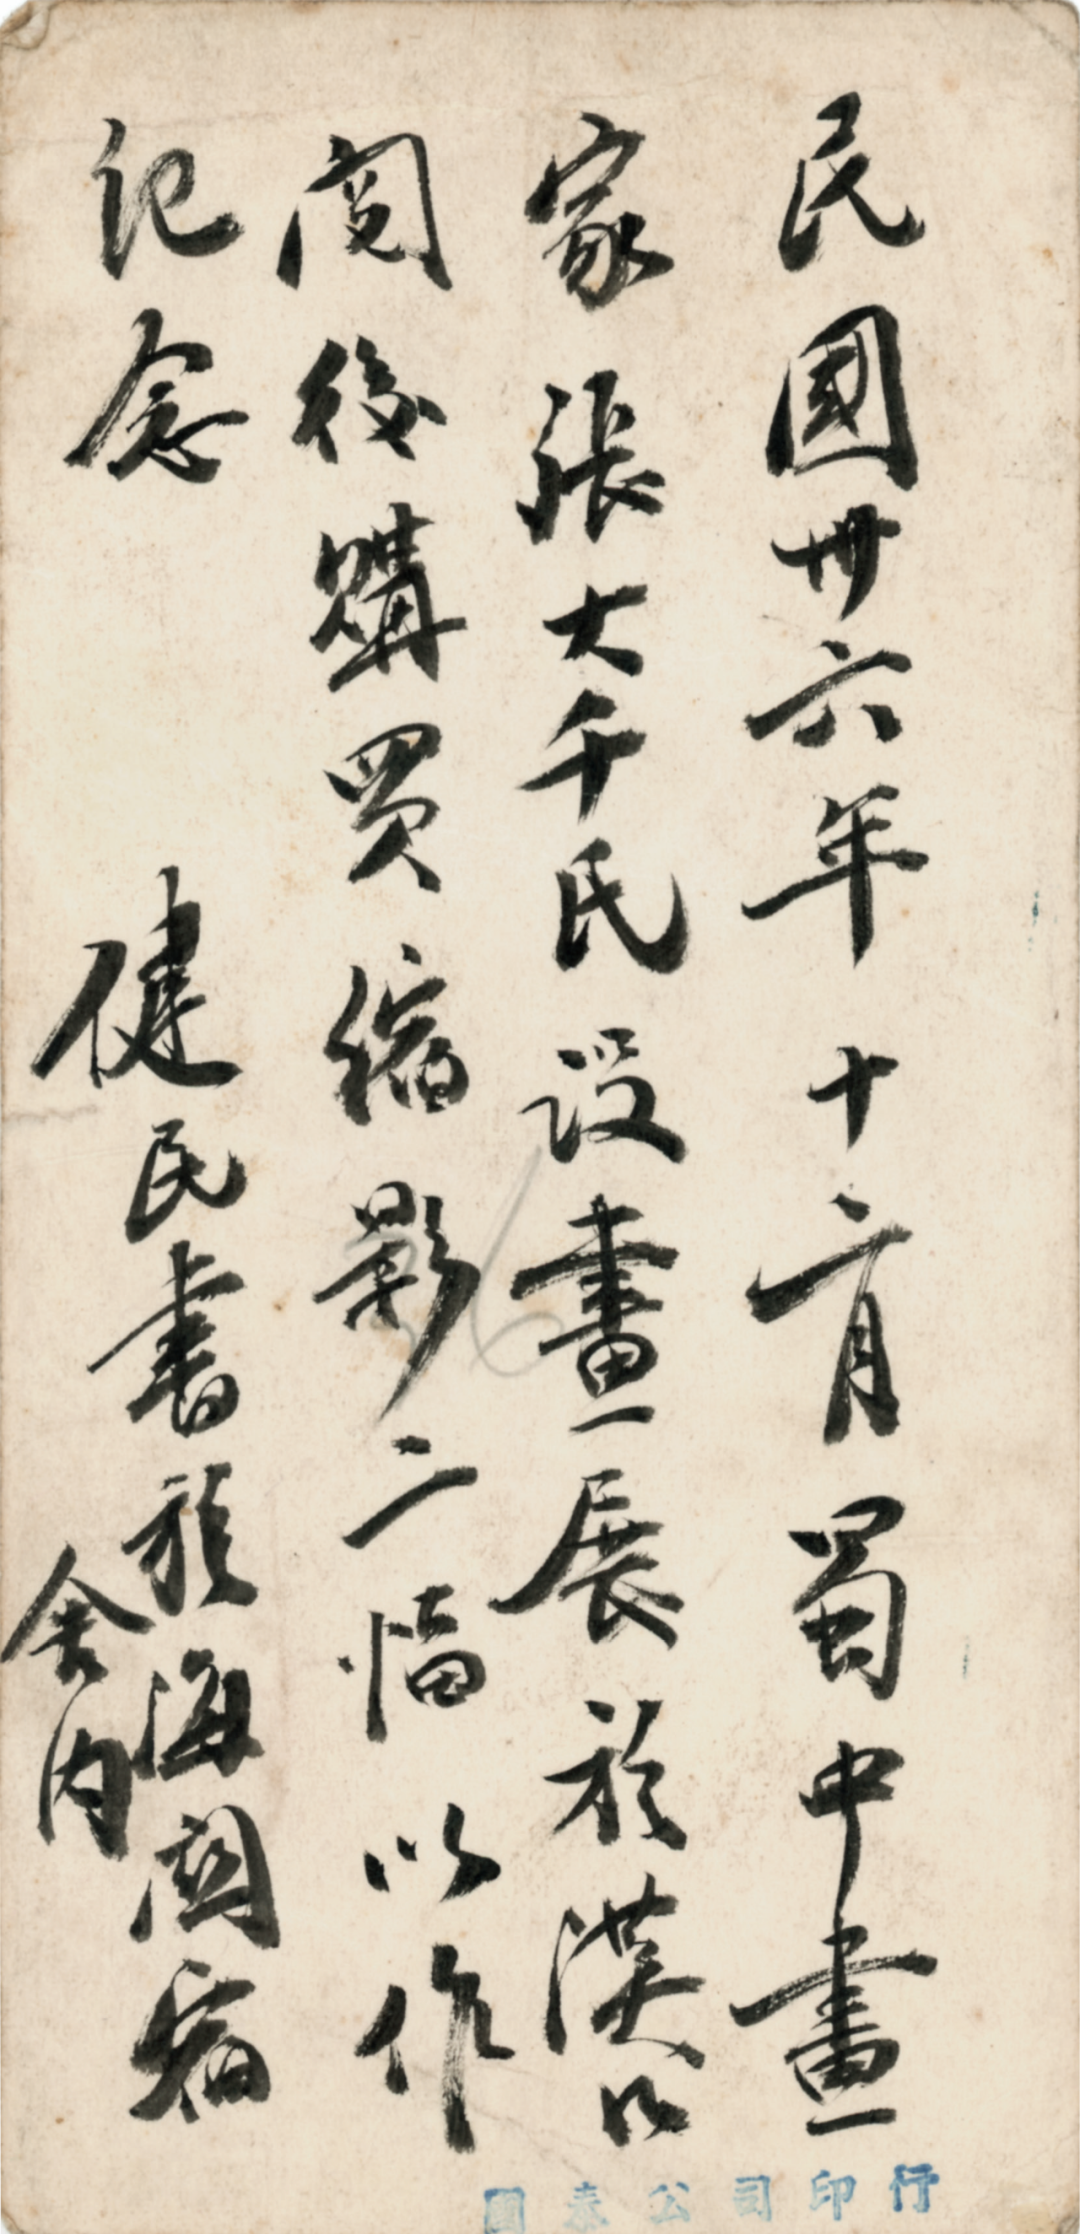 民國卅六年十二月蜀中畫
家張大千氏設畫展於漢口
閱後購買縮影二幅以作
記念
健民書於海關宿
舍内
國泰公司印行